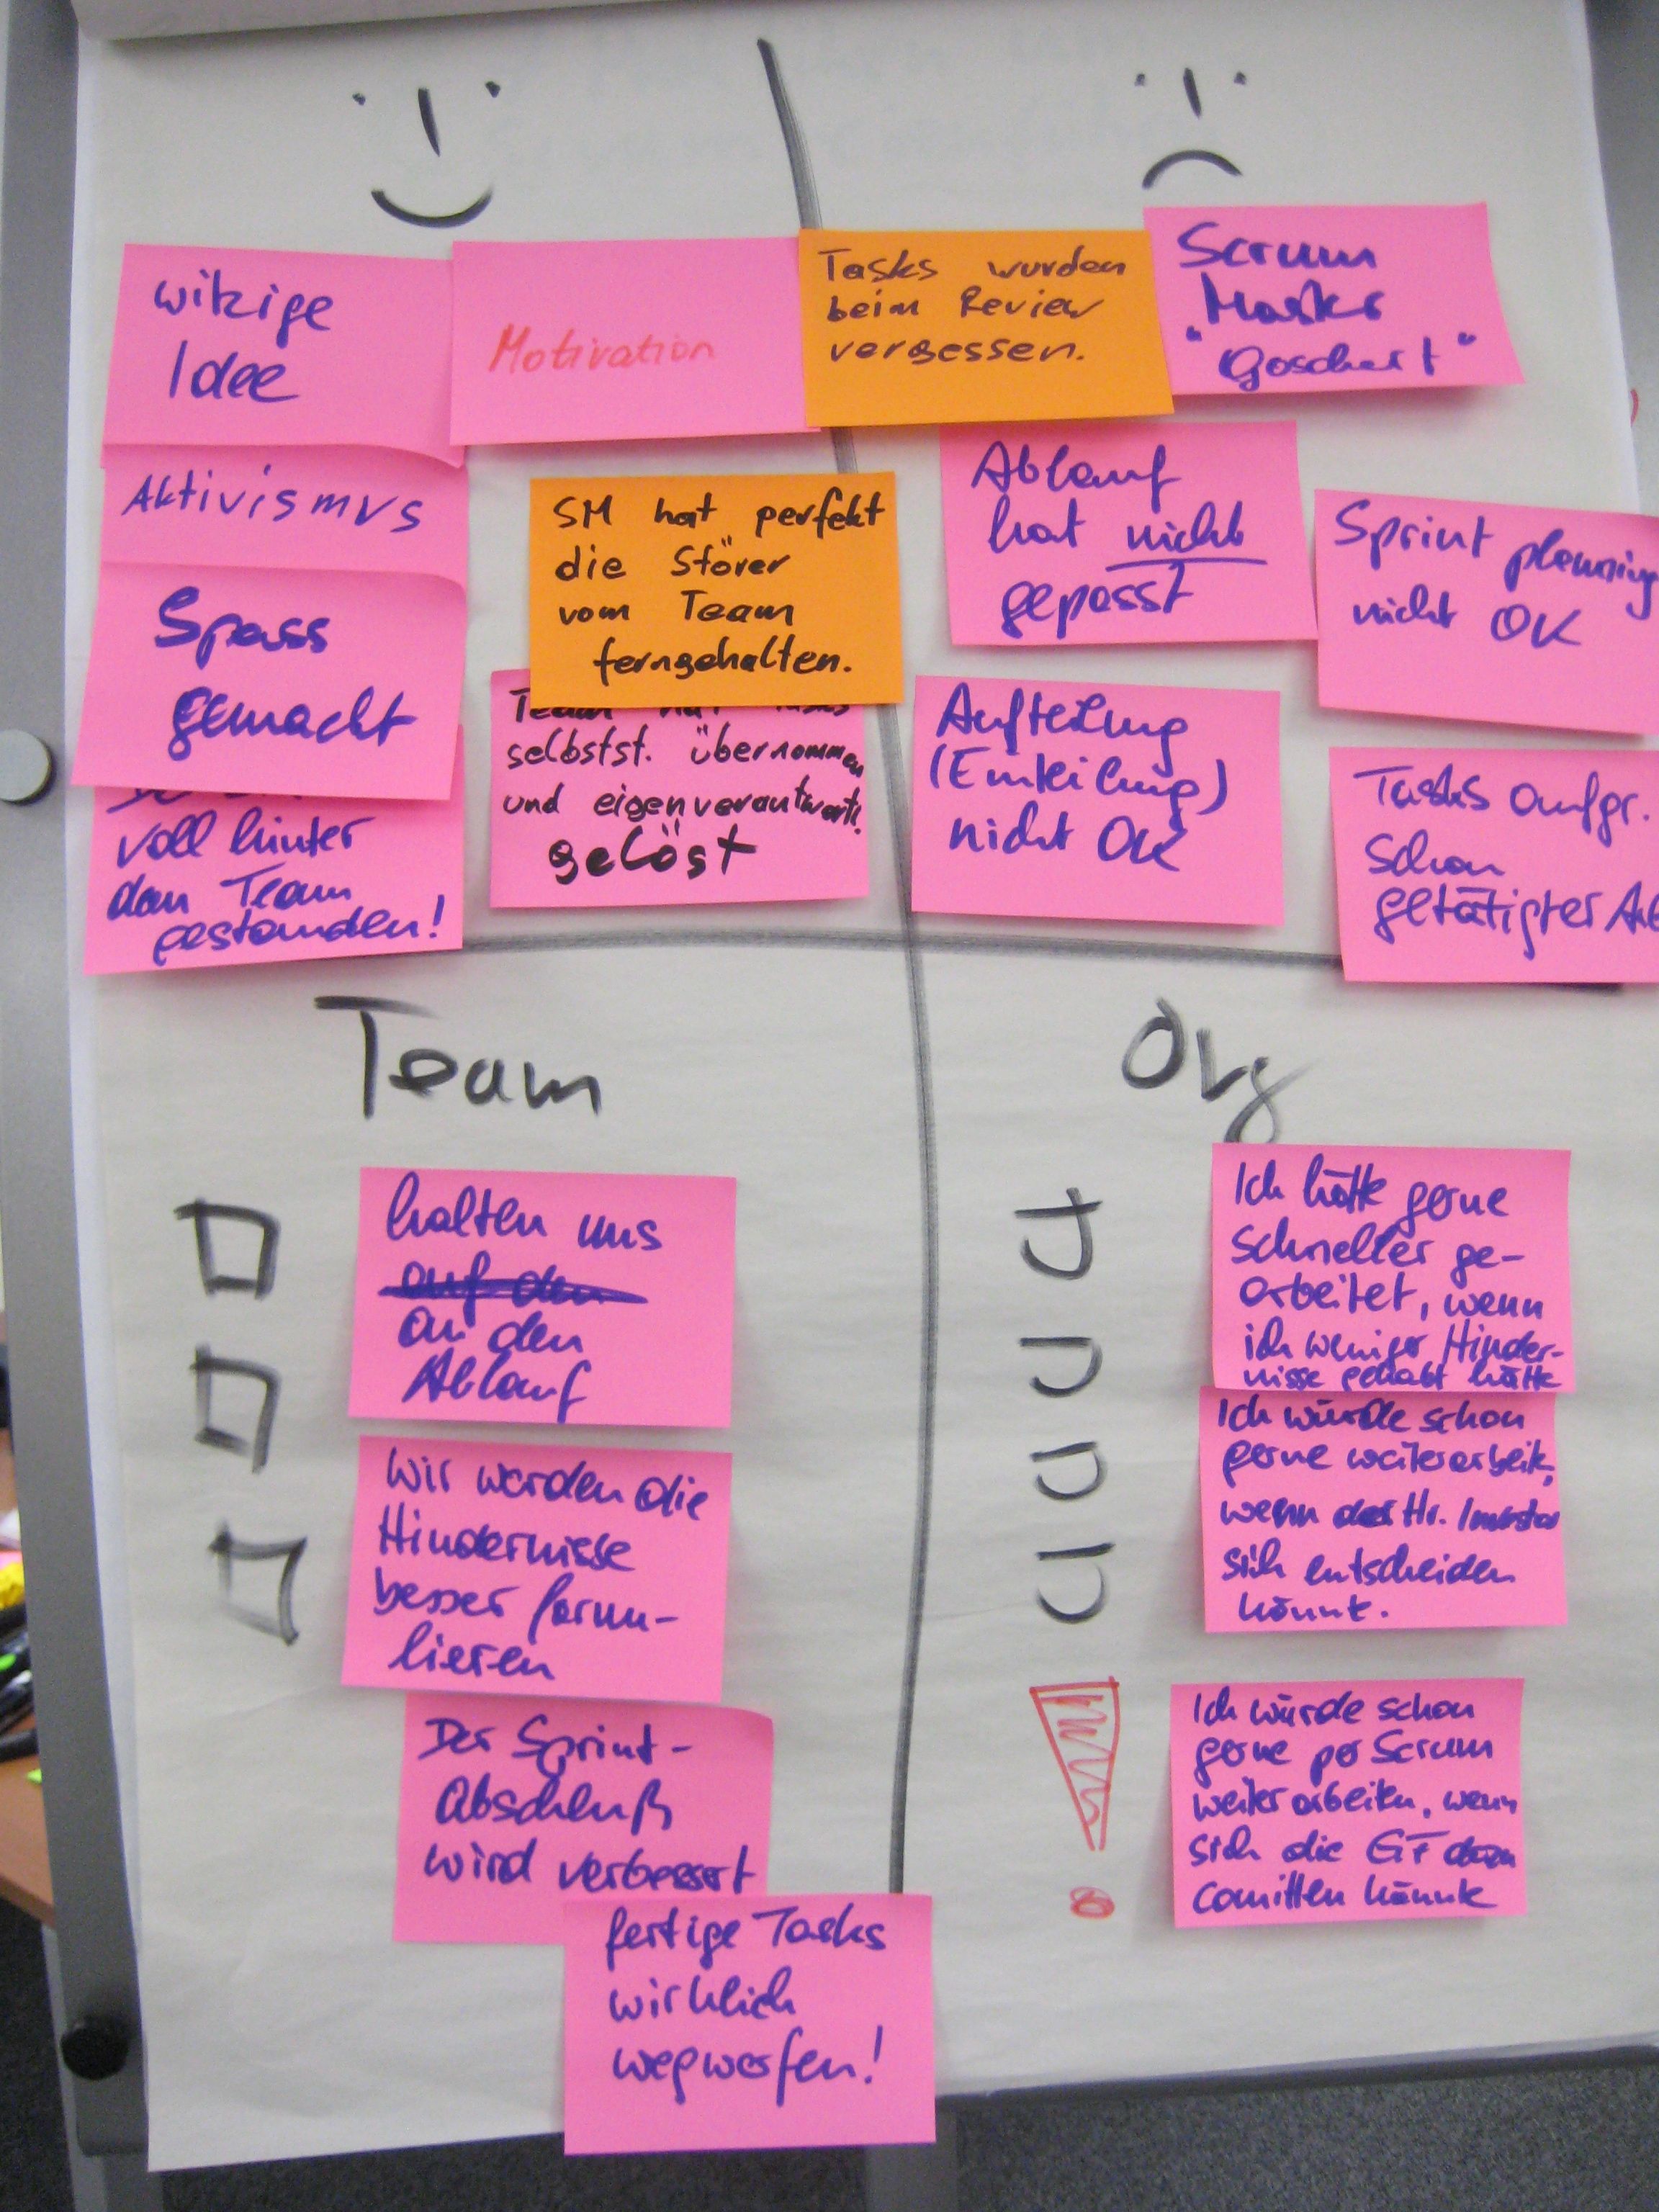 witzige
Idee
Motivation
Aktivismus
Spass
gemacht
voll hinter
dem Team
gestanden!
SM hat perfekt
die Störer
vom Team
ferngehalten.
Team hat Tasks
selbstst. übernommen
und eigenverantwortl.
gelöst
Tasks wurden
beim Review
vergessen.
Scrum
Master
"Goschert"
Ablauf
hat nicht
gepasst
Sprint planning
nicht OK
Aufteilung
(Einteilung)
nicht OK
Tasks aufgr.
schon
getätigter
Team
halten uns
auf den
an den
Ablauf
Wir werden die
Hindernisse
besser formu-
lieren
Der Sprint-
Abschluß
wird verbessert
fertige Tasks
wirklich
wegwerfen!
Org
Ich hätte gerne
schneller ge-
arbeitet, wenn
ich weniger Hinder-
nisse gehabt hätte
Ich würde schon
gerne weiterarbeiten,
wenn der Hr. Investor
sich entscheiden
könnt.
Ich würde schon
gerne per Scrum
weiter arbeiten, wenn
sich die GF dazu
comitten könnte
!